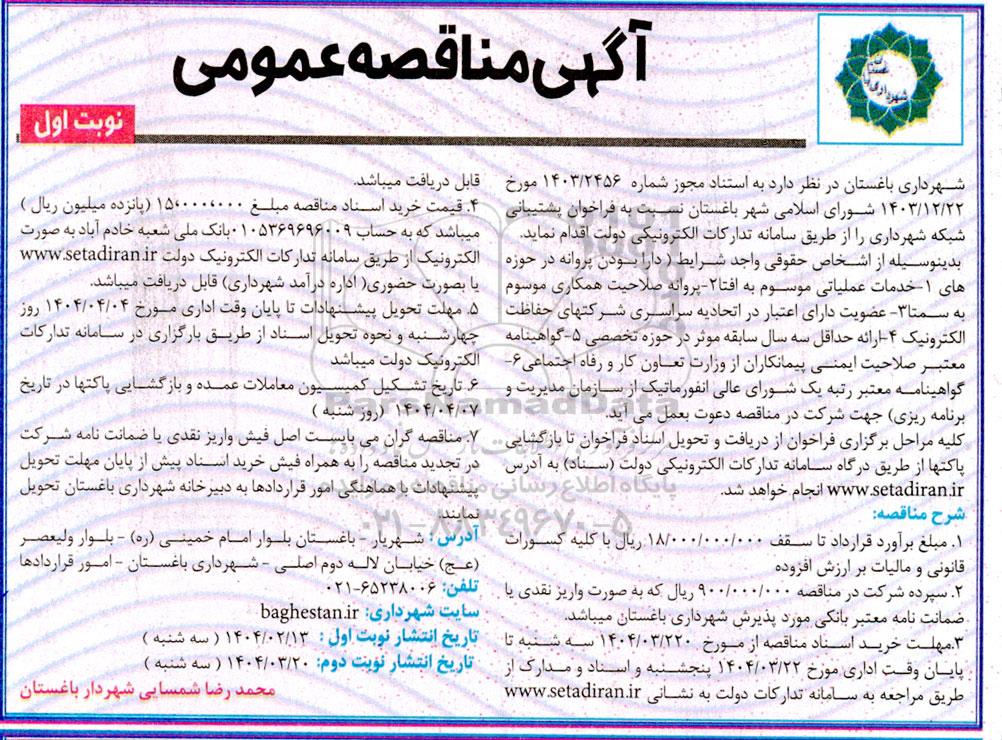 آگهی مناقصه عمومی
شهرداری باغستان
نوبت اول
شهرداری باغستان در نظر دارد به استناد مجوز شماره ۱۴۰۳/۲۴۵۶ مورخ
۱۴۰۳/۱۲/۲۲ شورای اسلامی شهر باغستان نسبت به فراخوان پشتیبانی
شبکه شهرداری را از طریق سامانه تدارکات الکترونیکی دولت اقدام نماید.
بدینوسیله از اشخاص حقوقی واجد شرایط ( دارا بودن پروانه در حوزه
های ۱-خدمات عملیاتی موسوم به افتا۲-پروانه صلاحیت همکاری موسوم
به سمتا۳- عضویت دارای اعتبار در اتحادیه سراسری شرکتهای حفاظت
الکترونیک ۴-ارائه حداقل سه سال سابقه موثر در حوزه تخصصی ۵-گواهینامه
معتبر صلاحیت ایمنی پیمانکاران از وزارت تعاون کار و رفاه اجتماعی۶-
گواهینامه معتبر رتبه یک شورای عالی انفورماتیک از سازمان مدیریت و
برنامه ریزی) جهت شرکت در مناقصه دعوت بعمل می آید.
کلیه مراحل برگزاری فراخوان از دریافت و تحویل اسناد فراخوان تا بازگشایی
پاکتها از طریق درگاه سامانه تدارکات الکترونیکی دولت (سناد) به آدرس
www.setadiran.ir انجام خواهد شد.
شرح مناقصه:
۱. مبلغ برآورد قرارداد تا سقف ۱۸/۰۰۰/۰۰۰/۰۰۰ ریال با کلیه کسورات
قانونی و مالیات بر ارزش افزوده
۲. سپرده شرکت در مناقصه ۹۰۰/۰۰۰/۰۰۰ ریال که به صورت واریز نقدی یا
ضمانت نامه معتبر بانکی مورد پذیرش شهرداری باغستان میباشد.
۳.مهلت خرید اسناد مناقصه از مورخ ۱۴۰۴/۰۳/۲۲۰ سه شنبه تا
پایان وقت اداری مورخ ۱۴۰۴/۰۳/۲۲ پنجشنبه و اسناد و مدارک از
طریق مراجعه به سامانه تدارکات دولت به نشانی www.setadiran.ir
قابل دریافت میباشد.
۴. قیمت خرید اسناد مناقصه مبلغ ۱۵۰۰۰۰۰۰۰ (پانزده میلیون ریال )
میباشد که به حساب ۰۱۰۵۳۶۹۶۹۶۰۰۹بانک ملی شعبه خادم آباد به صورت
الکترونیک از طریق سامانه تدارکات الکترونیک دولت www.setadiran.ir
یا بصورت حضوری( اداره درآمد شهرداری) قابل دریافت میباشد.
۵. مهلت تحویل پیشنهادات تا پایان وقت اداری مورخ ۱۴۰۴/۰۴/۰۴ روز
چهارشنبه و نحوه تحویل اسناد از طریق بارگزاری در سامانه تدارکات
الکترونیک دولت میباشد
۶. تاریخ تشکیل کمیسیون معاملات عمده و بازگشایی پاکتها در تاریخ
۱۴۰۴/۰۴/۰۷ (روز شنبه )
۷. مناقصه گران می بایست اصل فیش واریز نقدی یا ضمانت نامه شرکت
در تجدید مناقصه را به همراه فیش خرید اسناد پیش از پایان مهلت تحویل
پیشنهادات با هماهنگی امور قراردادها به دبیرخانه شهرداری باغستان تحویل
نمایند.
آدرس: شهریار - باغستان بلوار امام خمینی (ره) - بلوار ولیعصر
(عج) خیابان لاله دوم اصلی - شهرداری باغستان - امور قراردادها
تلفن: ۰۲۱-۶۵۲۳۸۰۰۶
سایت شهرداری: baghestan.ir
تاریخ انتشار نوبت اول : ۱۴۰۴/۰۲/۱۳ ( سه شنبه )
تاریخ انتشار نوبت دوم: ۱۴۰۴/۰۳/۲۰ ( سه شنبه )
محمد رضا شمسایی شهردار باغستان
ParsNamadData
پایگاه اطلاع رسانی مناقصه و مزایده
۰۲۱-۸۸۳۴۹۶۷۰-۵